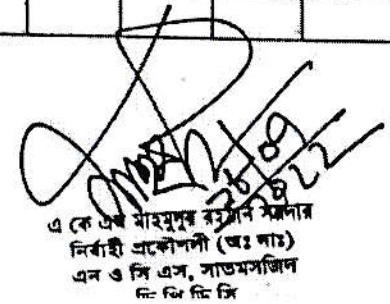 এ কে এম মাহমুদুর রহমান সরদার
নির্বাহী প্রকৌশলী (অঃ দাঃ)
এন ও সি এস, সাতমসজিদ
ডি পি ডি সি